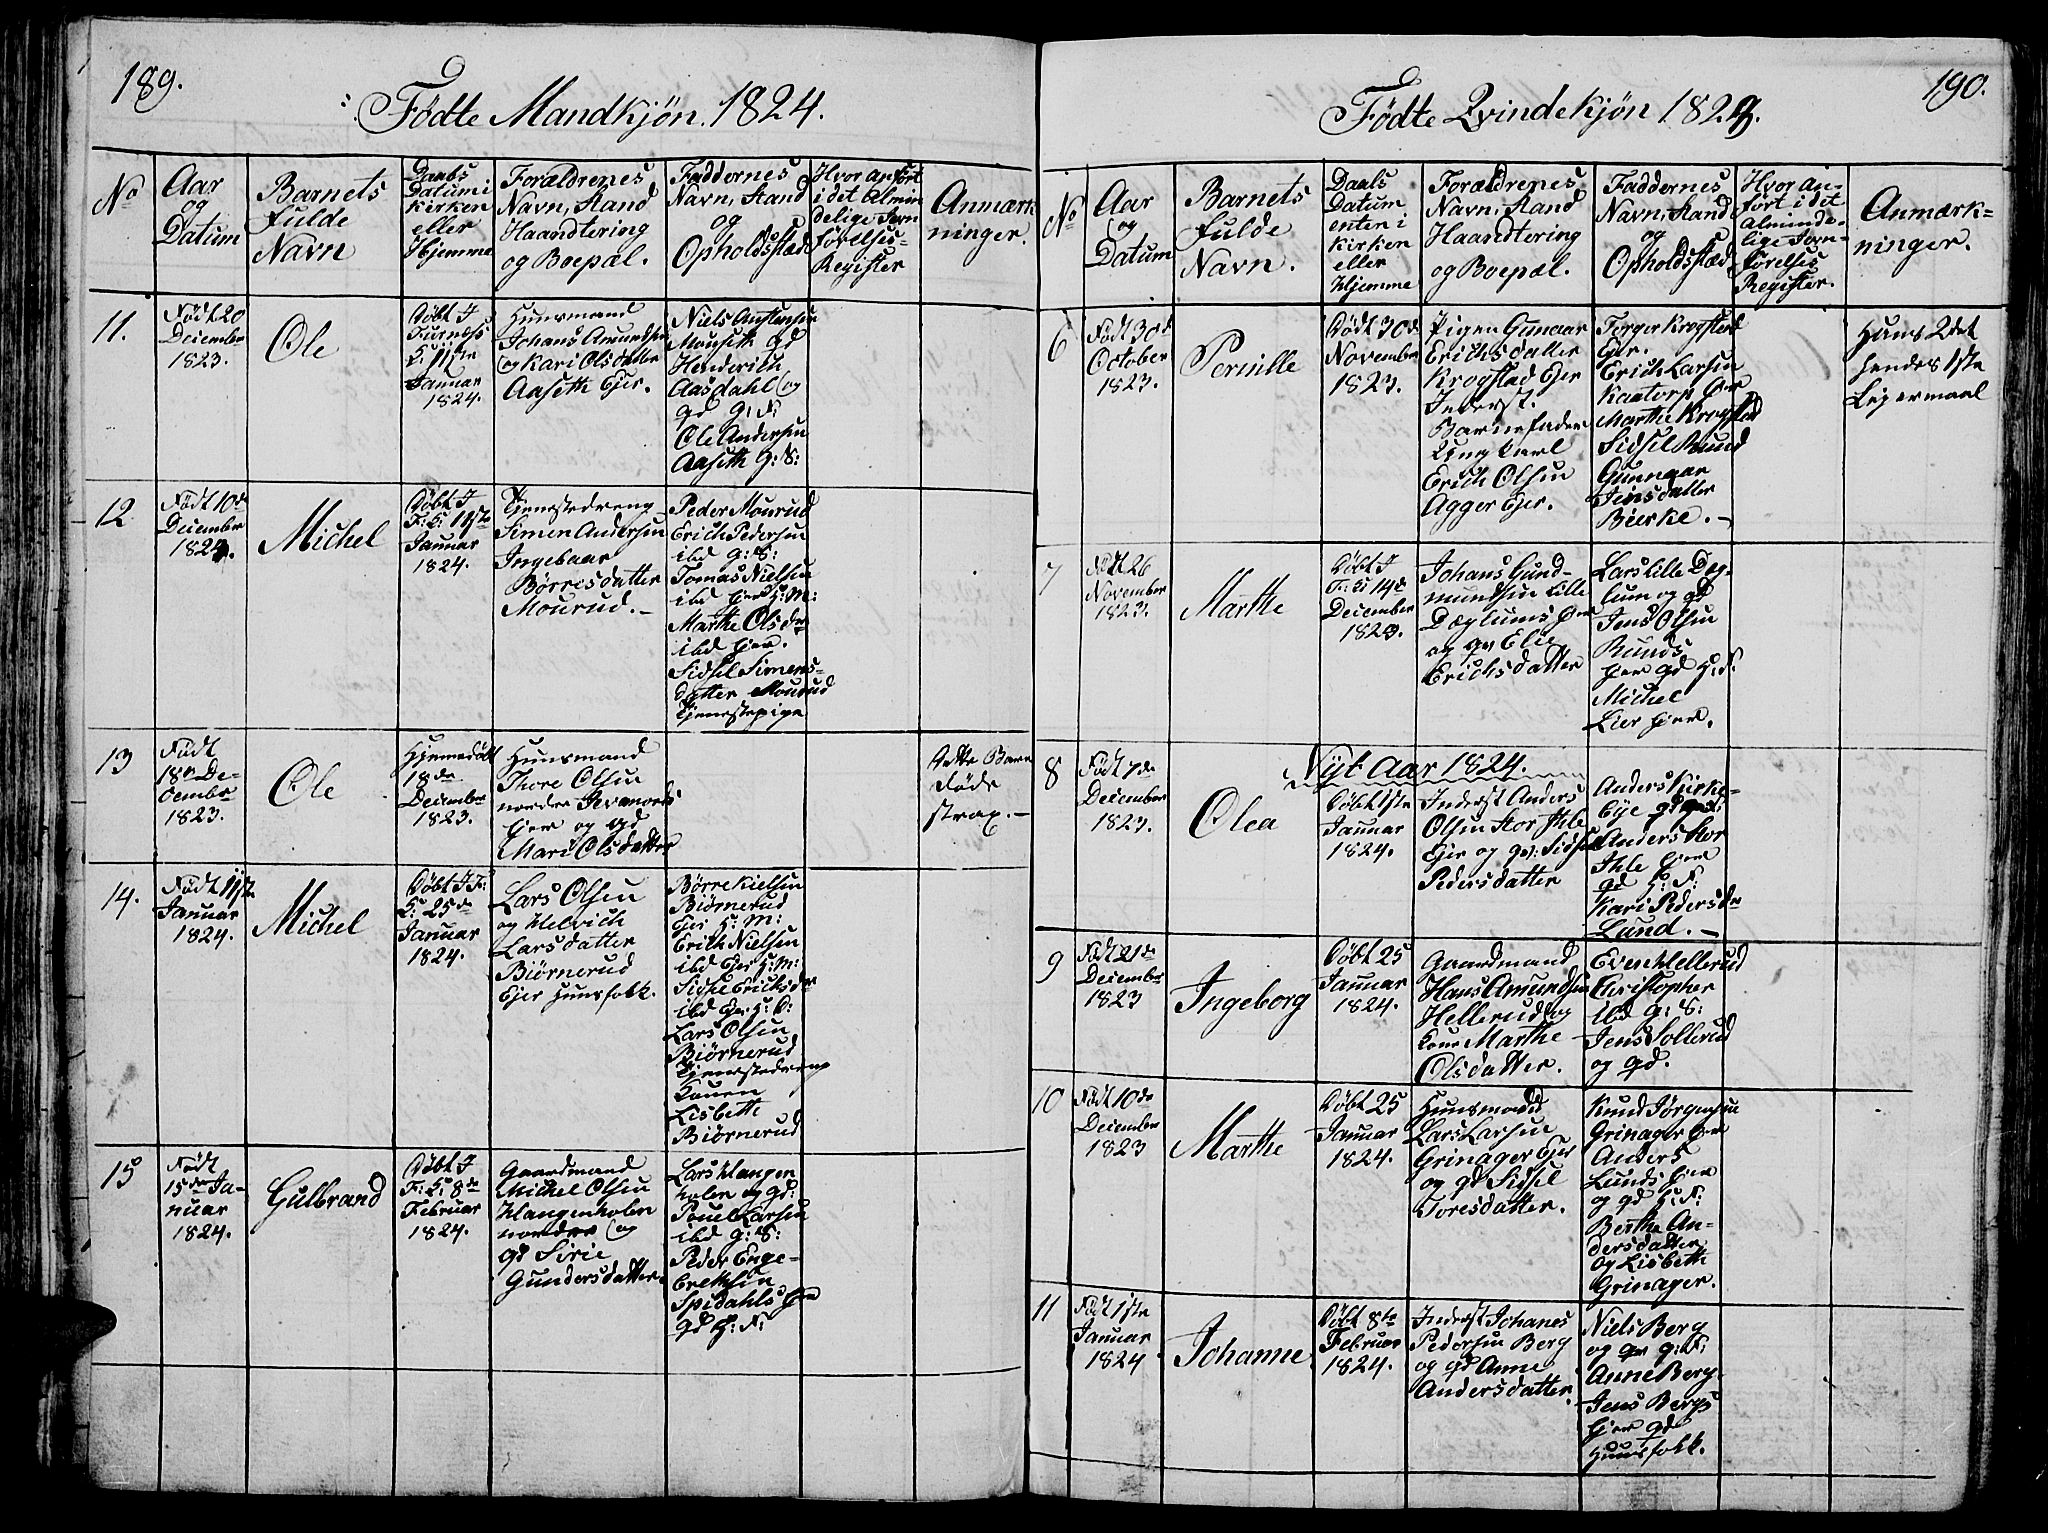 189.
Fødte Mandkjøn. 1824.
No
Aar
og
Datum
Barnets
fulde
Navn
Daabs
Datum i
kirken
eller
Hjemme
Forældrenes
Navn, Stand
Haandtering
og Boepæl.
Faddernes
Navn, Stand
og
Opholdsstæd
Hvor anført
i det Almin
delige Jevn
førelses-
Register
Anmærk
ninger.
11.
Født 20
December
1823.
Ole
Døbt I
Furnæss
K: 11te
Januar
1824.
Huusmand
Johans Amundsen
og Kari Olsdatter
Aaseth Ejer.
Niels Anstensen
Mouseth gd
Henderich
Aasdahl og
gd g: F:
Ole Andersen
Aaseth g: S:
12
Født 10de
December
1823.
Michel
Døbt I
F: K: 11te
Januar
1824.
Tjenestedreng
Simen Andersen
Ingebaar
Børresdatter
Mourud.
Peder Mourud
Erich Pedersen
ibd g: S:
Tomas Nielsen
ibd Ejer H: M:
Marthe Olsdr
ibd Ejer.
Sidsel Simens-
datter Mourud
Tjenestepige
13
Født
18de De-
cember
1823.
Ole
Hjemedøbt
18de
December
1823.
Huusmand
Thore Olsen
nordre
Ejer og gd
Mari Olsdatter
dette Barn
døde
strax.
14.
Født 11te
Januar
1824.
Michel
Døbt I F:
K: 25de
Januar
1824.
Lars Olsen
og Helvich
Larsdatter
Biørnerud
Ejer Huusfolk.
Børre Kielsen
Biørnerud
Ejer H: M:
Erich Nielsen
ibd Ejer H: M:
Sidse Ericksdr
ibd Ejer H: D:
Lars Olsen
Biørnerud
Tjenestedreng
Konen
Lisbette
Biørnerud
15
Født
15de Ja-
nuar
1824.
Gulbrand
Døbt I
F: K: 8de
Februar
1824.
Gaardmand
Michel Olsen
Klangenholen
nordre og
gd Sirie
Gundersdatter.
Lars Klangen
holen og gd:
Pouel Larsen
ibd g: S:
Peder Enge-
brethsen
Spidahls Ejer
gd H: F:
190.
Fødte Qvindekjøn 1824.
No
Aar
og
Datum
Barnets
fulde
Navn.
Daabs
Datum
enten i
kirken
eller
Hjemme
Forældrenes
Navn, Stand
Haandtering
og Boepæl.
Faddernes
Navn, Stand
og
Opholdsstæd
Hvor an-
ført i det
Alminde-
lige Jevn-
førelses
Register.
Anmærk-
ninger.
6
Født 30de
October
1823.
Pernille
Døbt 30de
November
1823.
Pigen Gunaar
Erichsdatter
Krogstad Ejer
Inderst.
Barnefader
Ung Karl
Erich Olsen
Agger Ejer.
Torger Krogstad
Ejer.
Erich Larsen
Kaatorp Ejer
Marthe Krogstad
Sidsel Ruud
Gunnaar
Jensdatter
Bierke.
Hans 2det
Hendes 1ste
Lejermaal
7
Født 26
November
1823.
Marthe
Døbt I
F: K: 14de
December
1823.
Johans Gund-
mundsen Lille
Dæglums Ejer
og gv Elie
Erichsdatter
Lars Lille Dæg-
lum og gd
Jens Olsen
Runds
Ejer gd H: F:
Michel
Lier Ejer.
Nyt Aar 1824.
8
Født 7de
December
1823.
Olea
Døbt 1ste
Januar
1824.
Inderst Anders
Olsen Stor Ihle
Ejer og gv: Sidsel
Pedersdatter
Anders Kirke-
Eje gd g: F:
Anders Stor
Ihle Ejer
gd H: F:
Kari Pedersdr
Lund.
9
Født 21de
December
1823
Ingeborg
Døbt 25
Januar
1824.
Gaardmand
Hans Amundsen
Hellerud og
Kone Marthe
Olsdatter.
Even Hellerud
Christopher
ibd g: S:
Jens Sollerud
og gd.
10
Født 10de
December
1823
Marthe
Døbt 25
Januar
1824.
Huusmand
Lars Larsen
Grinager Ejer
og gd Sidsel
Toresdatter.
Knud Jørgensen
Grinager Ejer
Anders
Lunds Ejer
og gd H: F:
Berthe An-
dersdatter
og Lisbeth
Grinager.
11
Født 1ste
Januar
1824
Johanne
Døbt 8de
Februar
1824.
Inderst Johanes
Pedersen Berg
og gd Anne
Andersdatter.
Niels Berg
og gv g: F:
Anne Berg
Jens Bergs
Ejer gd
Huusfolk.